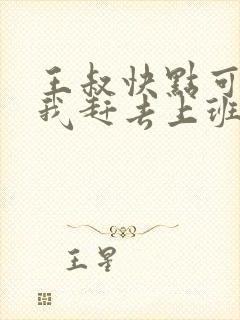 王叔快點可
我赶去上班
王星